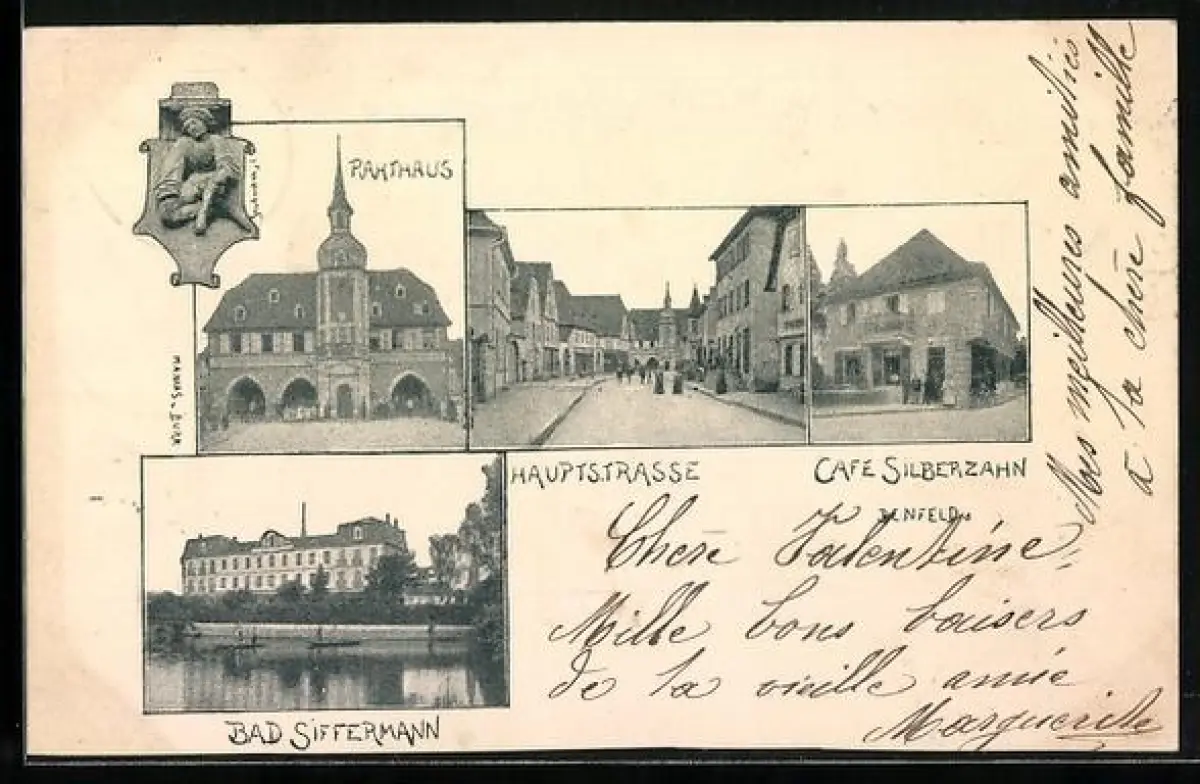 RATHAUS
HAUPTSTRASSE
CAFÉ SILBERZAHN
BENFELD
BAD SIFFERMANN
Chère Valentine,
Mille bons baisers
de la vieille amie
Marguerite
Mes meilleures amitiés
à ta chère famille